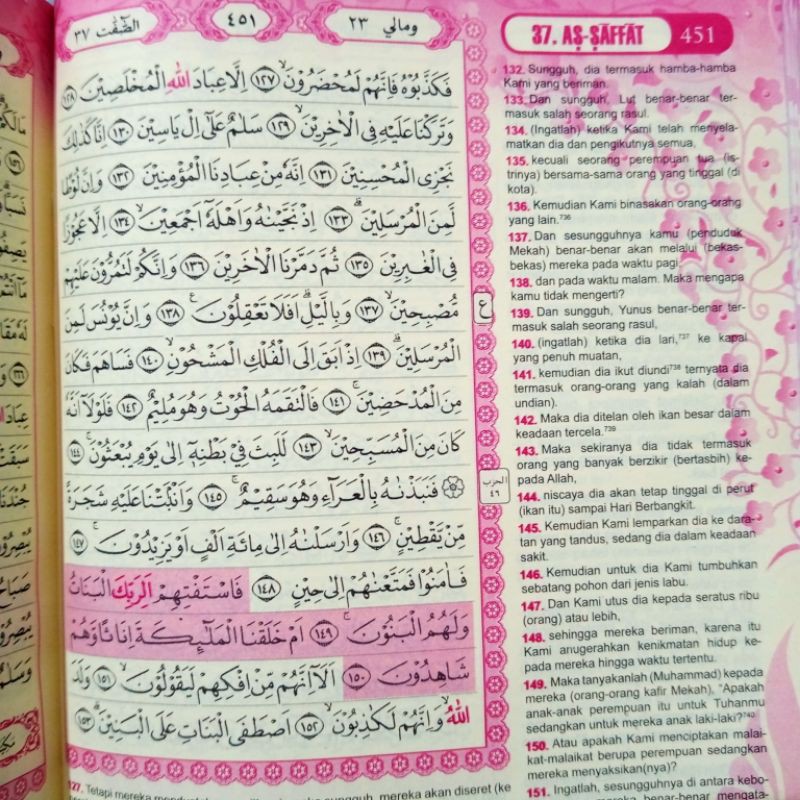 الصّٰۤفّٰت ٣٧
٤٥١
ومالي ٢٣
فَكَذَّبُوْهُ فَاِنَّهُمْ لَمُحْضَرُوْنَۙ ١٢٧ اِلَّا عِبَادَ اللّٰهِ الْمُخْلَصِيْنَ ١٢٨
وَتَرَكْنَا عَلَيْهِ فِى الْاٰخِرِيْنَۙ ١٢٩ سَلٰمٌ عَلٰٓى اِلْ يَاسِيْنَ ١٣٠ اِنَّا كَذٰلِكَ
نَجْزِى الْمُحْسِنِيْنَ ١٣١ اِنَّهٗ مِنْ عِبَادِنَا الْمُؤْمِنِيْنَ ١٣٢ وَاِنَّ لُوْطًا
لَّمِنَ الْمُرْسَلِيْنَۗ ١٣٣ اِذْ نَجَّيْنٰهُ وَاَهْلَهٗٓ اَجْمَعِيْنَۙ ١٣٤ اِلَّا عَجُوْزًا
فِى الْغٰبِرِيْنَ ١٣٥ ثُمَّ دَمَّرْنَا الْاٰخَرِيْنَ ١٣٦ وَاِنَّكُمْ لَتَمُرُّوْنَ عَلَيْهِمْ
مُّصْبِحِيْنَۙ ١٣٧ وَبِالَّيْلِۗ اَفَلَا تَعْقِلُوْنَ ١٣٨ وَاِنَّ يُوْنُسَ لَمِنَ
ع
الْمُرْسَلِيْنَۗ ١٣٩ اِذْ اَبَقَ اِلَى الْفُلْكِ الْمَشْحُوْنِۙ ١٤٠ فَسَاهَمَ فَكَانَ
مِنَ الْمُدْحَضِيْنَۚ ١٤١ فَالْتَقَمَهُ الْحُوْتُ وَهُوَ مُلِيْمٌ ١٤٢ فَلَوْلَآ اَنَّهٗ
كَانَ مِنَ الْمُسَبِّحِيْنَۙ ١٤٣ لَلَبِثَ فِيْ بَطْنِهٖٓ اِلٰى يَوْمِ يُبْعَثُوْنَۚ ١٤٤
الحزب ٤٦
فَنَبَذْنٰهُ بِالْعَرَاۤءِ وَهُوَ سَقِيْمٌۚ ١٤٥ وَاَنْۢبَتْنَا عَلَيْهِ شَجَرَةً
مِّنْ يَّقْطِيْنٍۚ ١٤٦ وَاَرْسَلْنٰهُ اِلٰى مِائَةِ اَلْفٍ اَوْ يَزِيْدُوْنَۚ ١٤٧
فَاٰمَنُوْا فَمَتَّعْنٰهُمْ اِلٰى حِيْنٍ ١٤٨ فَاسْتَفْتِهِمْ اَلِرَبِّكَ الْبَنَاتُ
وَلَهُمُ الْبَنُوْنَۚ ١٤٩ اَمْ خَلَقْنَا الْمَلٰۤىِٕكَةَ اِنَاثًا وَّهُمْ
شَاهِدُوْنَ ١٥٠ اَلَآ اِنَّهُمْ مِّنْ اِفْكِهِمْ لَيَقُوْلُوْنَۙ ١٥١ وَلَدَ
اللّٰهُۙ وَاِنَّهُمْ لَكٰذِبُوْنَۙ ١٥٢ اَصْطَفَى الْبَنَاتِ عَلَى الْبَنِيْنَۗ ١٥٣
37. AṢ-ṢĀFFĀT 451
132. Sungguh, dia termasuk hamba-hamba
Kami yang beriman.
133. Dan sungguh, Lut benar-benar ter-
masuk salah seorang rasul.
134. (Ingatlah) ketika Kami telah menyela-
matkan dia dan pengikutnya semua,
135. kecuali seorang perempuan tua (is-
trinya) bersama-sama orang yang tinggal (di
kota).
136. Kemudian Kami binasakan orang-orang
yang lain.736
137. Dan sesungguhnya kamu (penduduk
Mekah) benar-benar akan melalui (bekas-
bekas) mereka pada waktu pagi,
138. dan pada waktu malam. Maka mengapa
kamu tidak mengerti?
139. Dan sungguh, Yunus benar-benar ter-
masuk salah seorang rasul,
140. (ingatlah) ketika dia lari,737 ke kapal
yang penuh muatan,
141. kemudian dia ikut diundi738 ternyata dia
termasuk orang-orang yang kalah (dalam
undian).
142. Maka dia ditelan oleh ikan besar dalam
keadaan tercela.739
143. Maka sekiranya dia tidak termasuk
orang yang banyak berzikir (bertasbih) ke-
pada Allah,
144. niscaya dia akan tetap tinggal di perut
(ikan itu) sampai Hari Berbangkit.
145. Kemudian Kami lemparkan dia ke dara-
tan yang tandus, sedang dia dalam keadaan
sakit.
146. Kemudian untuk dia Kami tumbuhkan
sebatang pohon dari jenis labu.
147. Dan Kami utus dia kepada seratus ribu
(orang) atau lebih,
148. sehingga mereka beriman, karena itu
Kami anugerahkan kenikmatan hidup ke-
pada mereka hingga waktu tertentu.
149. Maka tanyakanlah (Muhammad) kepada
mereka (orang-orang kafir Mekah), "Apakah
anak-anak perempuan itu untuk Tuhanmu
sedangkan untuk mereka anak laki-laki?"740
150. Atau apakah Kami menciptakan malai-
kat-malaikat berupa perempuan sedangkan
mereka menyaksikan(nya)?
151. Ingatlah, sesungguhnya di antara kebo-